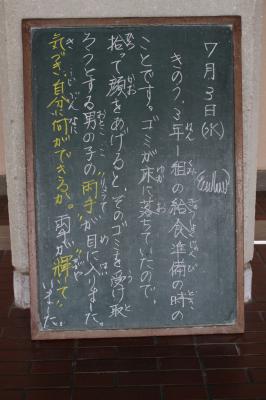 7月3日(水)
きのう、3年1組の給食準備の時の
ことです。ゴミが床に落ちていたので、
拾って顔をあげると、そのゴミを受け取
ろうとする男の子の"両手"が目に入りました。
気づき、自分に何ができるか。両手が"輝いて"
いました。